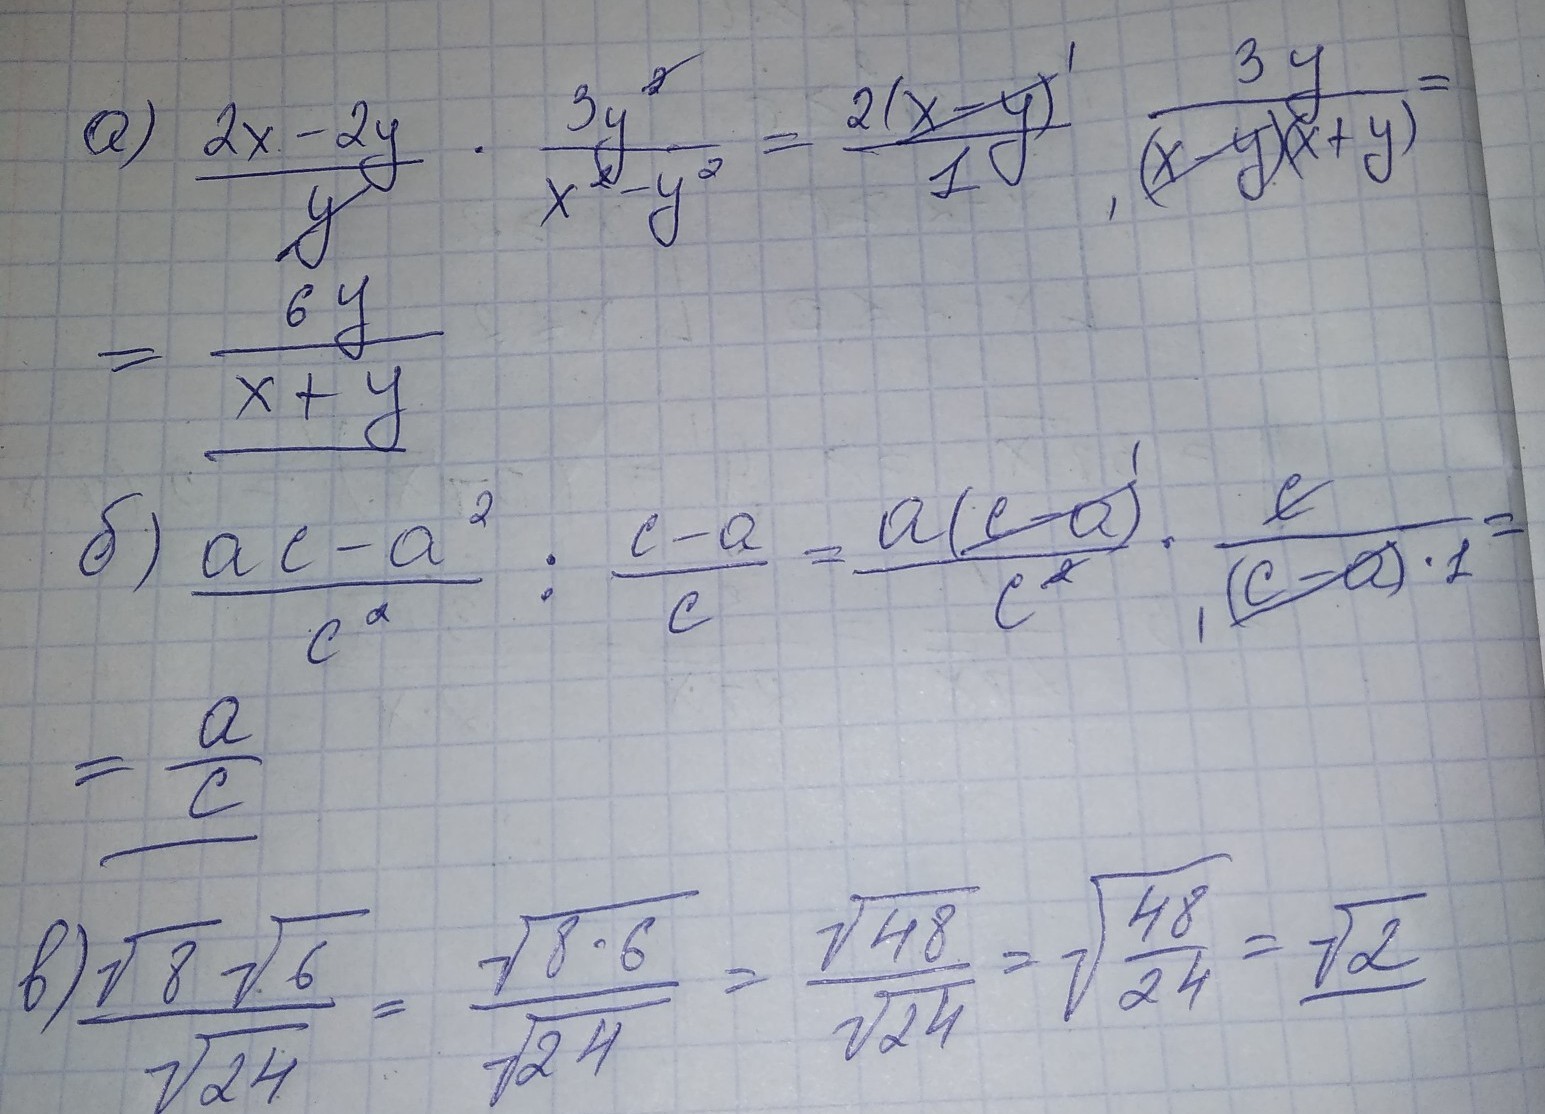 а) (2x - 2y)/y · 3y²/(x² - y²) = 2(x - y)/1 · 3y/((x - y)(x + y)) =
= 6y/(x + y)
б) (ac - a²)/c² : (c - a)/c = a(c - a)/c² · c/((c - a) · 1) =
= a/c
в) √8 √6/√24 = √(8·6)/√24 = √48/√24 = √(48/24) = √2